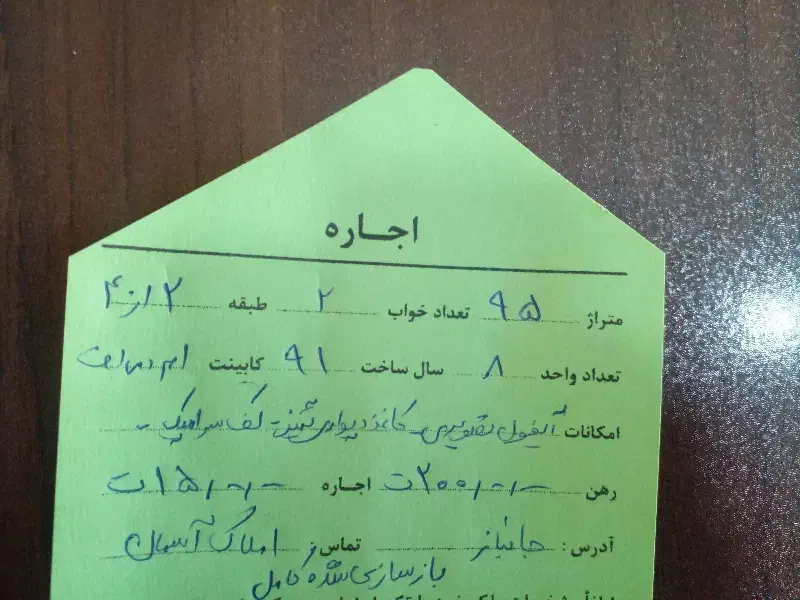 اجاره
متراژ ۹۵ تعداد خواب ۲ طبقه ۲ از ۴
تعداد واحد ۸ سال ساخت ۹۱ کابینت ام دی اف
امکانات آیفون تصویری - کاغذ دیواری تمیز - کف سرامیک -
رهن ۲۰۰/۰/۰ ت اجاره ۱۵/۰/۰ ت
آدرس: جانباز تماس: املاک آسمان
بازسازی شده کامل